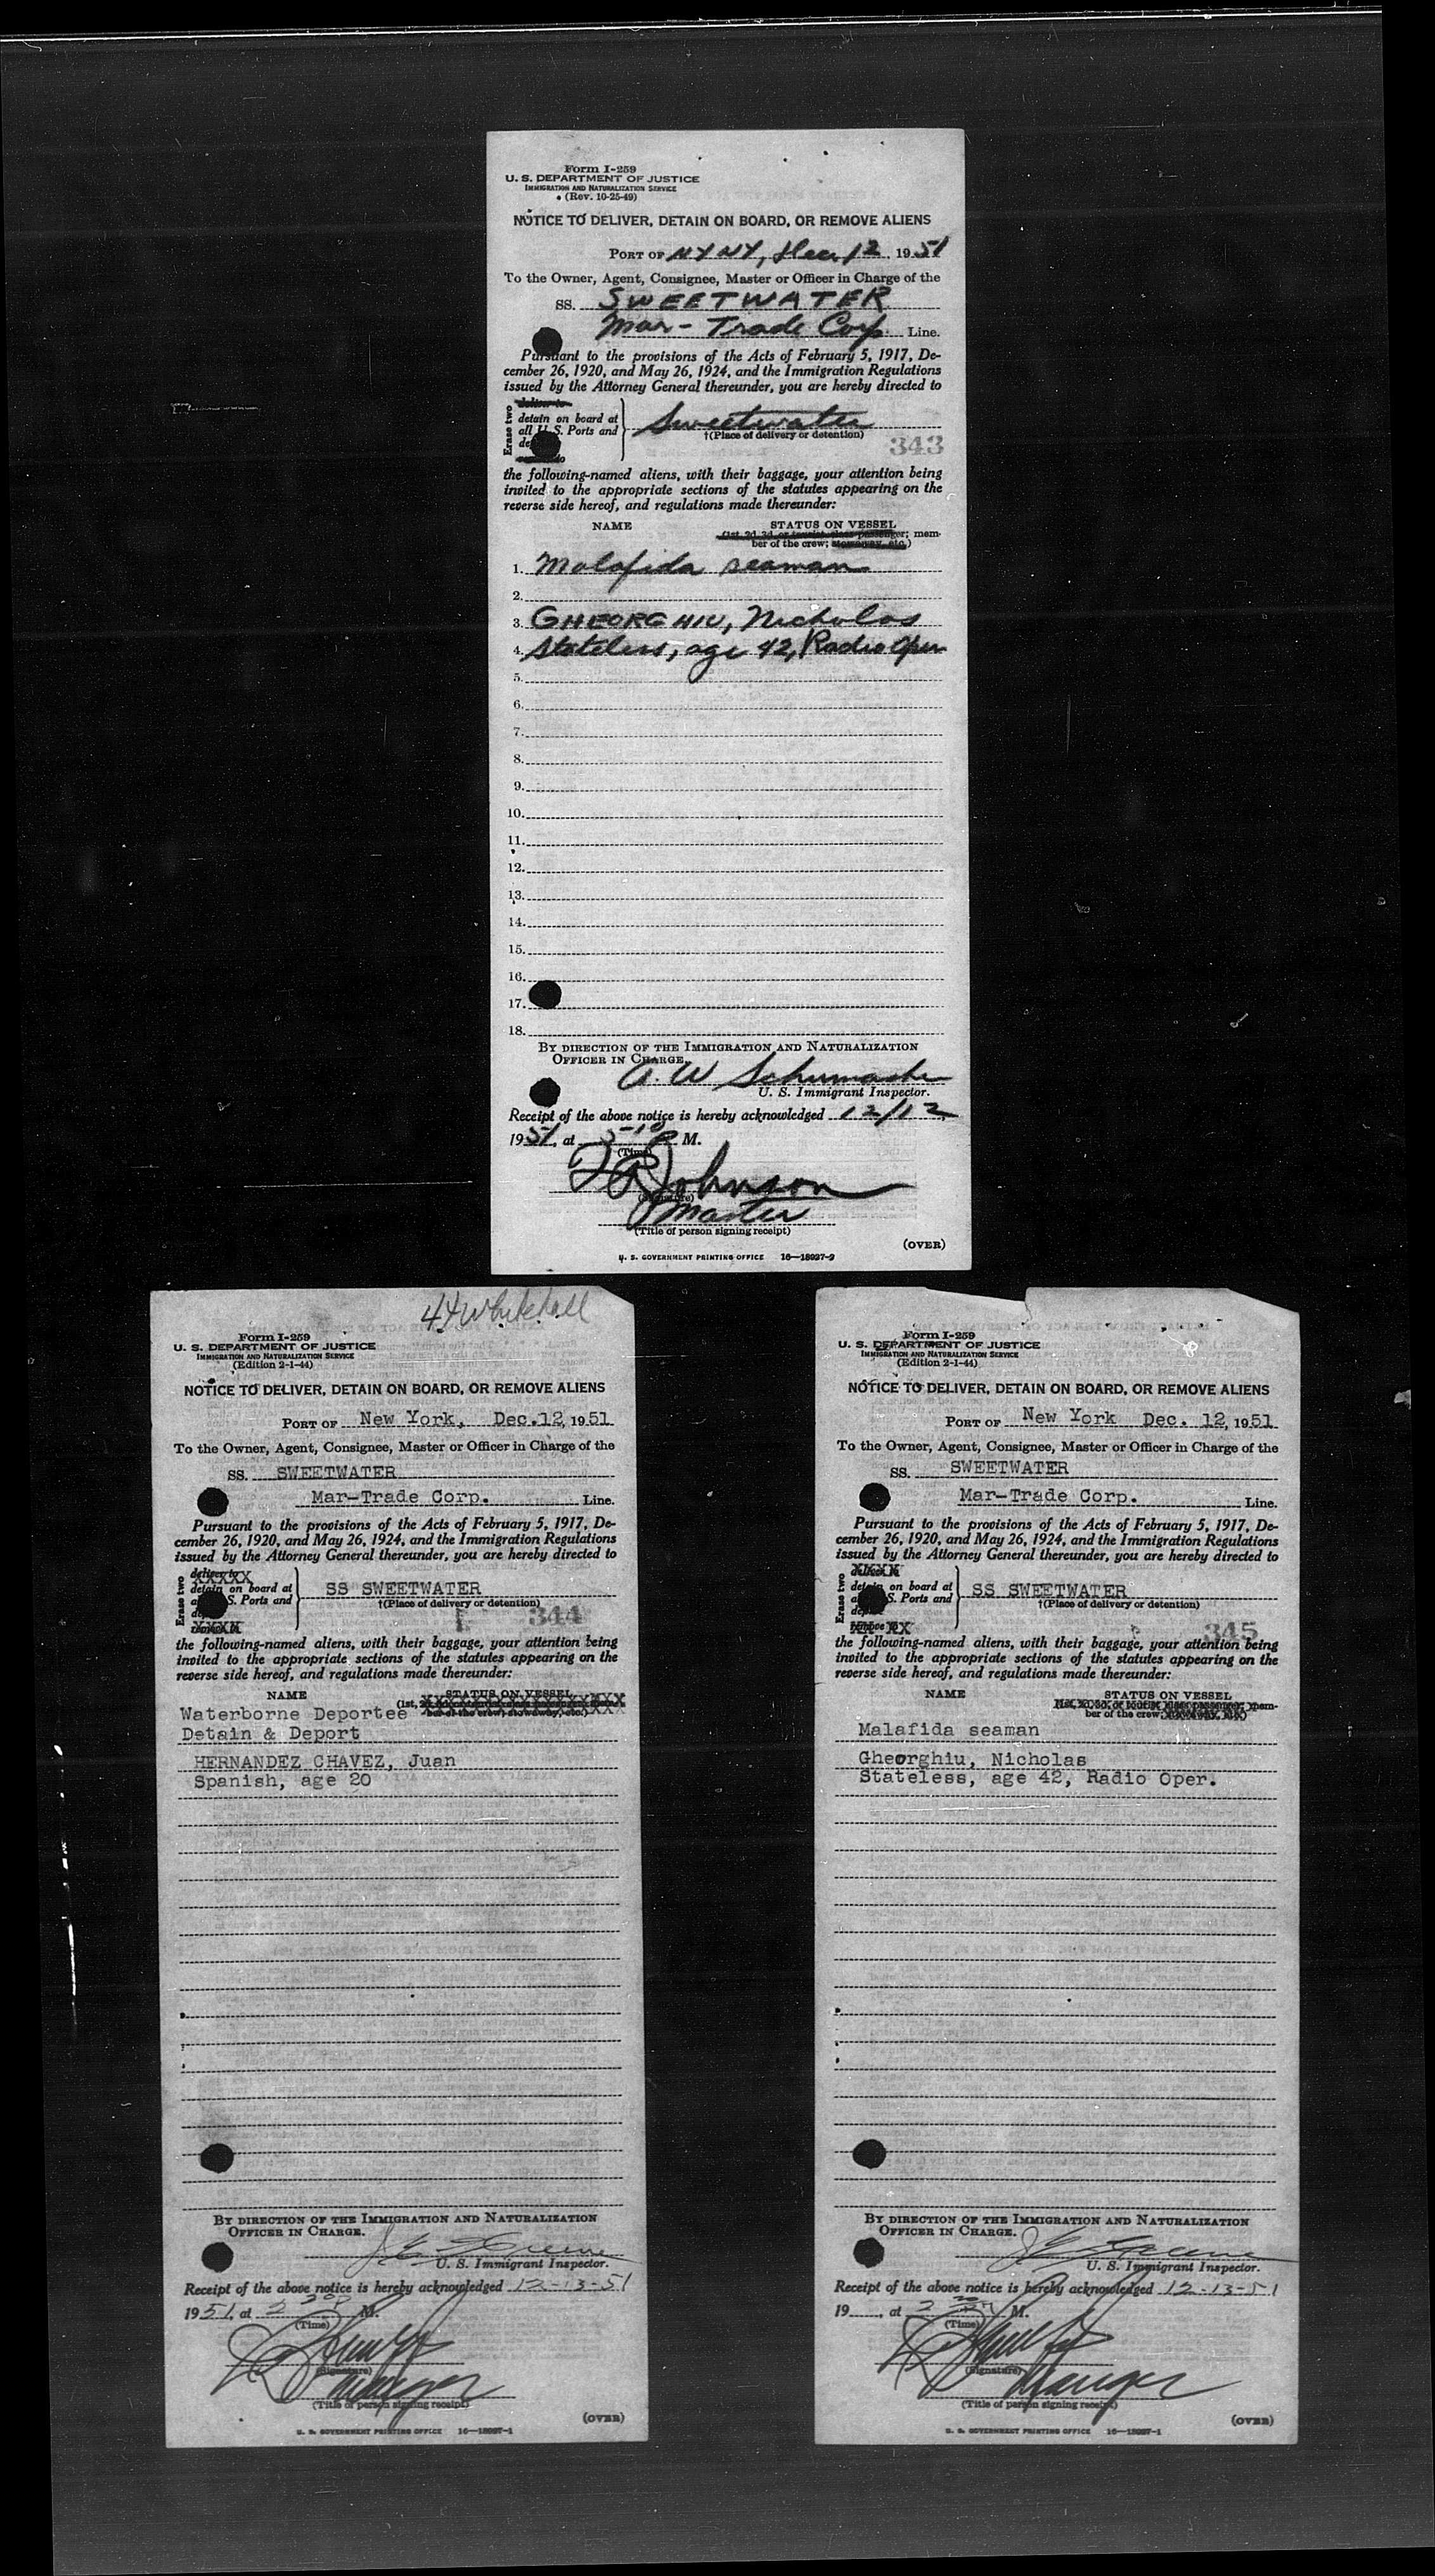 Form I-259
U. S. DEPARTMENT OF JUSTICE
IMMIGRATION AND NATURALIZATION SERVICE
(Rev. 10-25-49)
NOTICE TO DELIVER, DETAIN ON BOARD, OR REMOVE ALIENS
PORT OF NY NY, Dec. 12, 1951
To the Owner, Agent, Consignee, Master or Officer in Charge of the
SS. SWEETWATER
Mar-Trade Corp. Line.
Pursuant to the provisions of the Acts of February 5, 1917, De-
cember 26, 1920, and May 26, 1924, and the Immigration Regulations
issued by the Attorney General thereunder, you are hereby directed to
Erase two
deliver to
detain on board at
all U.S. Ports and
Sweetwater
†(Place of delivery or detention)
343
the following-named aliens, with their baggage, your attention being
invited to the appropriate sections of the statutes appearing on the
reverse side hereof, and regulations made thereunder:
NAME STATUS ON VESSEL
(1st, 2d, 3d, or tourist class passenger; mem-
ber of the crew; stowaway, etc.)
1. Malafida seaman
2.
3. GHEORGHIU, Nicholas
4. Stateless, age 42, Radio Oper
5.
6.
7.
8.
9.
10.
11.
12.
13.
14.
15.
16.
17.
18.
BY DIRECTION OF THE IMMIGRATION AND NATURALIZATION
OFFICER IN CHARGE.
A. W Schumacher
U. S. Immigrant Inspector.
Receipt of the above notice is hereby acknowledged 12/12,
1951, at 5-10 P. M.
(Time)
Johnson
(Signature)
Master
(Title of person signing receipt)
(OVER)
U. S. GOVERNMENT PRINTING OFFICE 16—18927-2
44 Whitehall
Form I-259
U. S. DEPARTMENT OF JUSTICE
IMMIGRATION AND NATURALIZATION SERVICE
(Edition 2-1-44)
NOTICE TO DELIVER, DETAIN ON BOARD, OR REMOVE ALIENS
PORT OF New York, Dec.12, 1951
To the Owner, Agent, Consignee, Master or Officer in Charge of the
SS. SWEETWATER
Mar-Trade Corp. Line.
Pursuant to the provisions of the Acts of February 5, 1917, De-
cember 26, 1920, and May 26, 1924, and the Immigration Regulations
issued by the Attorney General thereunder, you are hereby directed to
Erase two
deliver to
detain on board at
S. Ports and
remove to
SS SWEETWATER
†(Place of delivery or detention)
344
the following-named aliens, with their baggage, your attention being
invited to the appropriate sections of the statutes appearing on the
reverse side hereof, and regulations made thereunder:
NAME STATUS ON VESSEL
Waterborne Deportee
Detain & Deport
HERNANDEZ CHAVEZ, Juan
Spanish, age 20
BY DIRECTION OF THE IMMIGRATION AND NATURALIZATION
OFFICER IN CHARGE.
U. S. Immigrant Inspector.
Receipt of the above notice is hereby acknowledged 12-13-51
1951, at 2 20 P M.
(Time)
(Signature)
Manager
(Title of person signing receipt)
(OVER)
U. S. GOVERNMENT PRINTING OFFICE 16—18927-1
Form I-259
U. S. DEPARTMENT OF JUSTICE
IMMIGRATION AND NATURALIZATION SERVICE
(Edition 2-1-44)
NOTICE TO DELIVER, DETAIN ON BOARD, OR REMOVE ALIENS
PORT OF New York Dec. 12, 1951
To the Owner, Agent, Consignee, Master or Officer in Charge of the
SS. SWEETWATER
Mar-Trade Corp. Line.
Pursuant to the provisions of the Acts of February 5, 1917, De-
cember 26, 1920, and May 26, 1924, and the Immigration Regulations
issued by the Attorney General thereunder, you are hereby directed to
Erase two
detain on board at
S. Ports and
remove to
SS SWEETWATER
†(Place of delivery or detention)
345
the following-named aliens, with their baggage, your attention being
invited to the appropriate sections of the statutes appearing on the
reverse side hereof, and regulations made thereunder:
NAME STATUS ON VESSEL
(1st, 2d, 3d, or tourist class passenger; mem-
ber of the crew;
Malafida seaman
Gheorghiu, Nicholas
Stateless, age 42, Radio Oper.
BY DIRECTION OF THE IMMIGRATION AND NATURALIZATION
OFFICER IN CHARGE.
U. S. Immigrant Inspector.
Receipt of the above notice is hereby acknowledged 12-13-51
19 , at 2 20 M.
(Time)
(Signature)
Manager
(Title of person signing receipt)
(OVER)
U. S. GOVERNMENT PRINTING OFFICE 16—18927-1